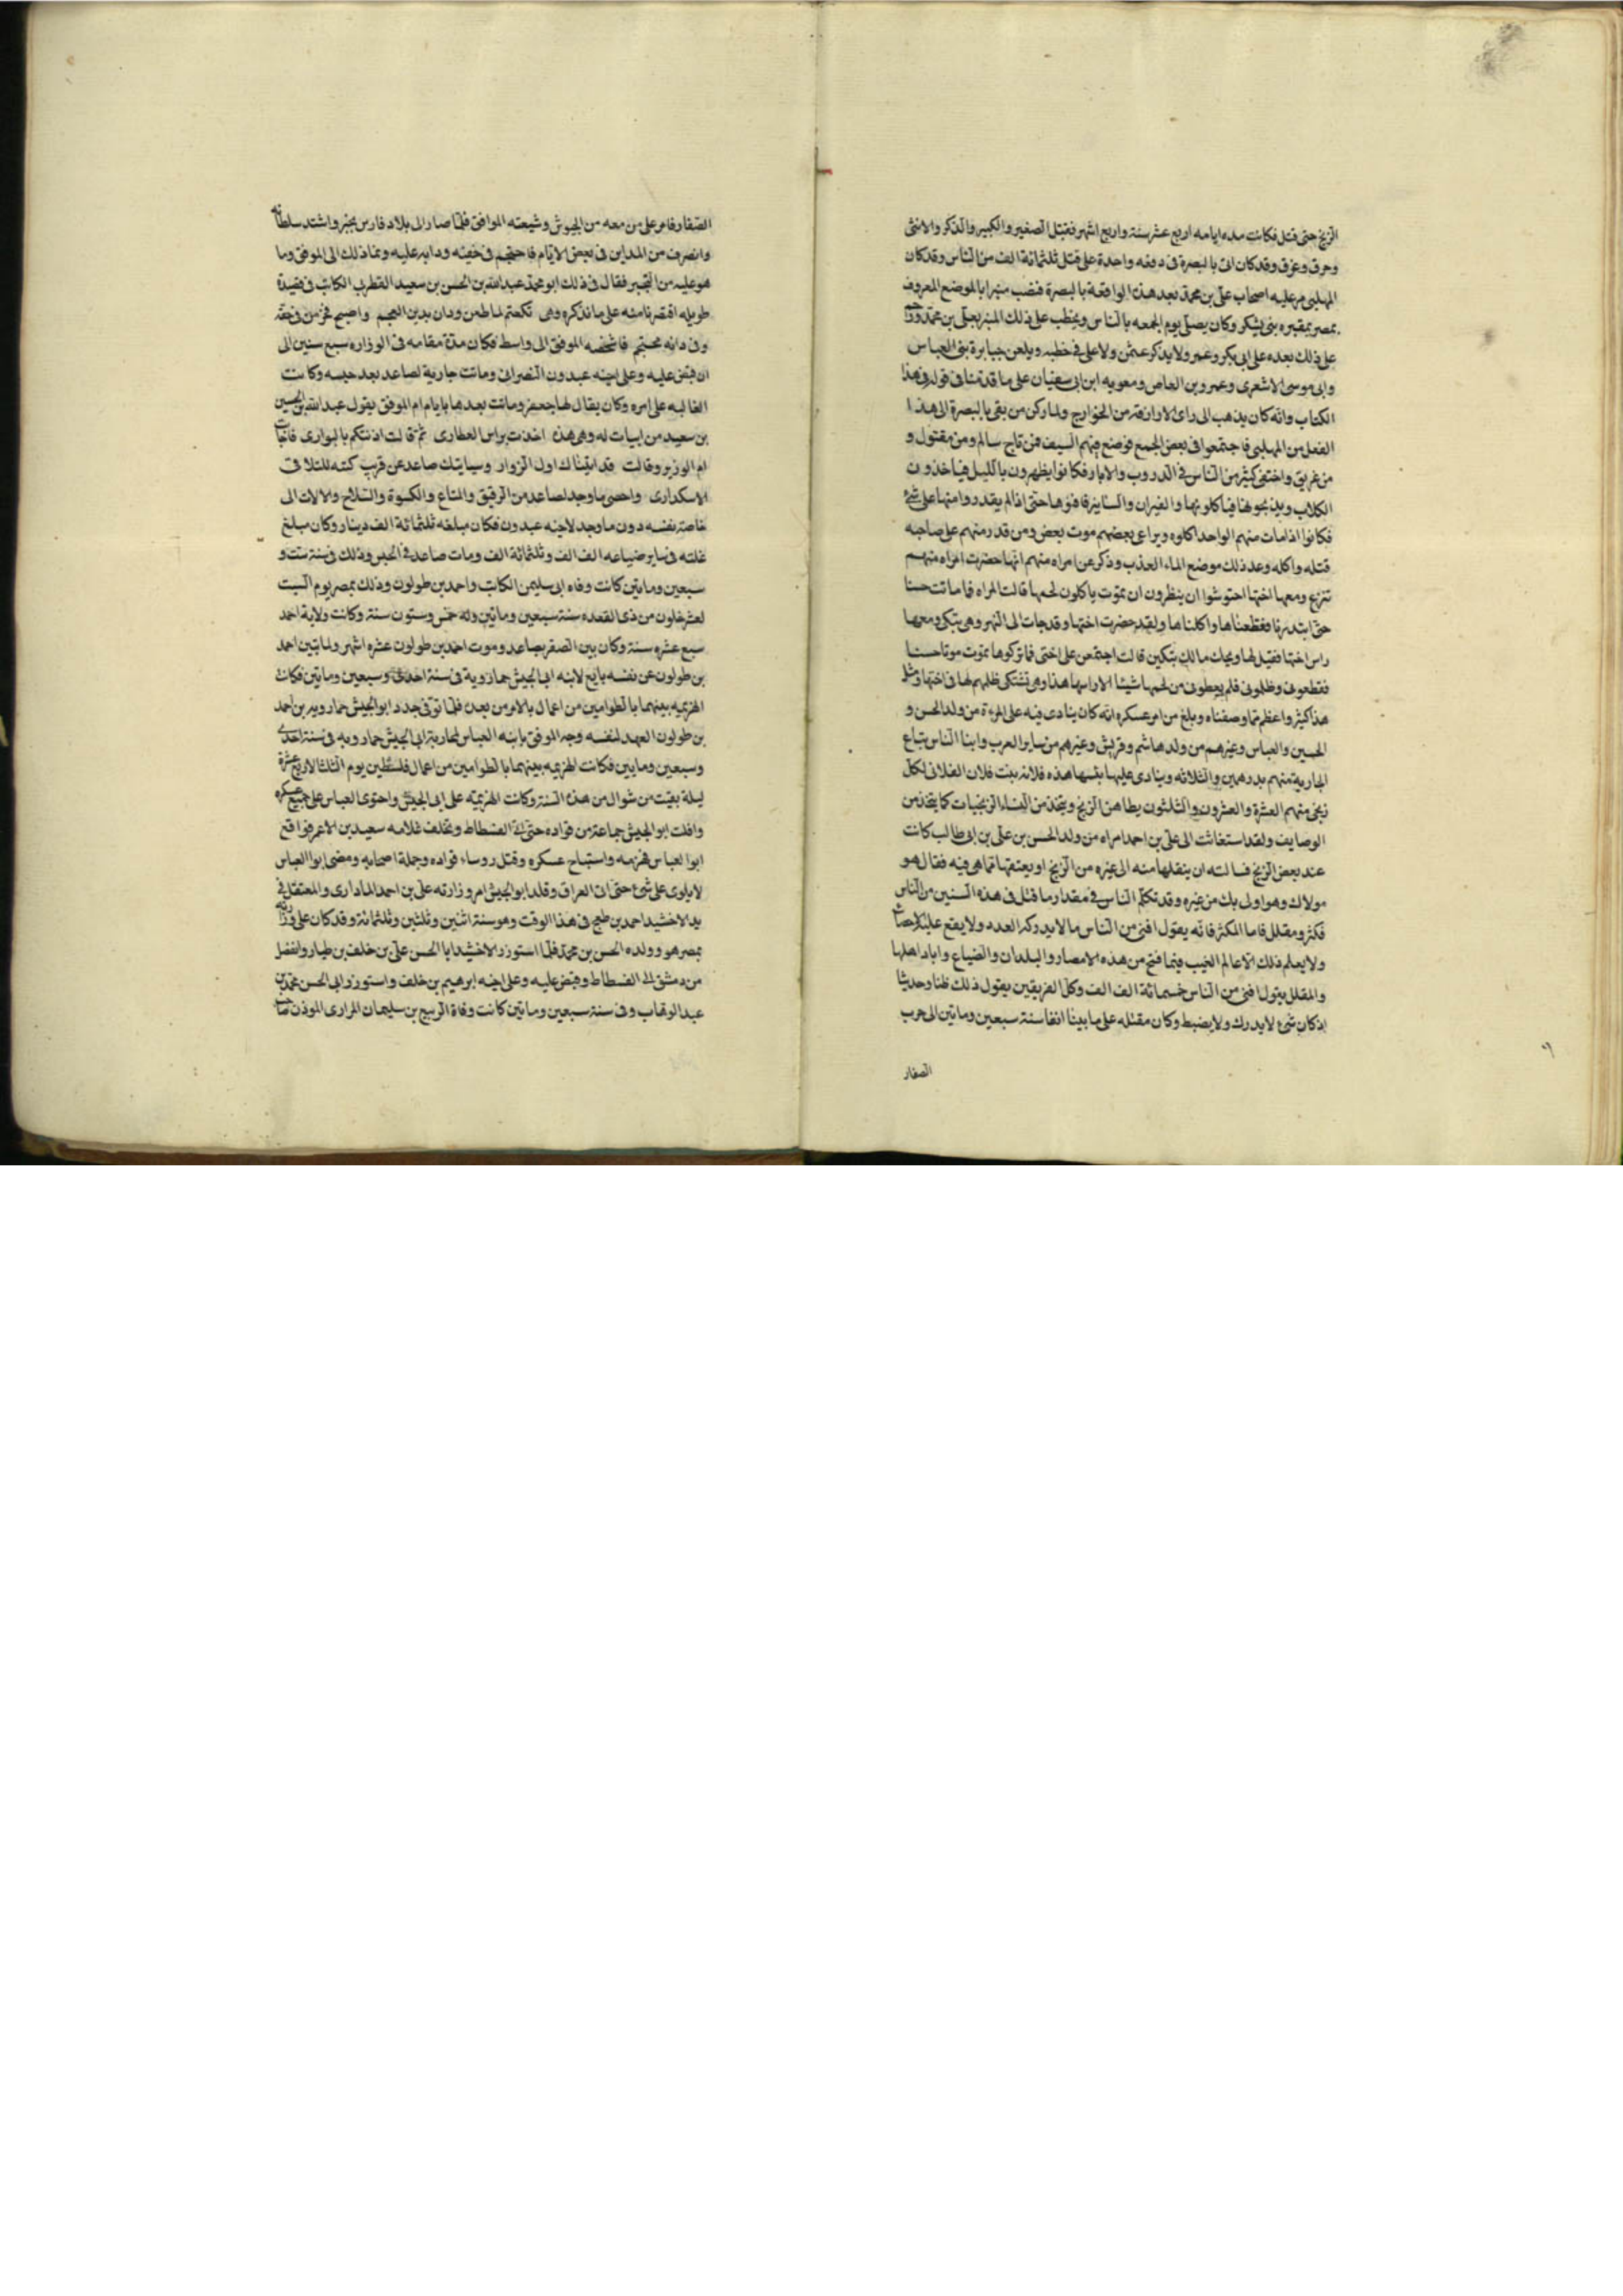 الزنج حتى قتل فكانت مده ايامه اربع عشر سنة واربع اشهر فقتل الصغير والكبير والذكر والانثى
وحرق وغرق وقد كان اتى بالبصرة فى دفعه واحدة على قتل ثلثمائة الف من الناس وقد كان
المهلبى من عليه اصحاب على بن محمد بعد هذه الواقعة بالبصرة فنصب منبرا بالموضع المعروف
بمصر بمقبره بنى يشكر وكان يصلى يوم الجمعه بالناس ويخطب على ذلك المنبر بعلى بن محمد
على ذلك بعده على ابى بكر وعمر ولا يذكر عثمن ولا على فى خطبه ويلعن جبابرة بنى العباس
وابى موسى الاشعرى وعمرو بن العاص ومعويه ابن ابى سفيان على ما قدمنا فى قوله فى هذا
الكتاب وانه كان يذهب الى راى الازارقه من الخوارج ولما ركن من بقى بالبصرة الى هذا
الفعل من المهلبى فاجتمعوا فى بعض الجمع فوضع فيهم السيف فمن ناج سالم ومن مقتول و
من غريق واختفى كثير من الناس فى الدروب والابار فكانوا يظهرون بالليل فياخذون
الكلاب ويذبحونها فياكلونها والفيران والسنانير فافنوها حتى اذا لم يقدروا منها على شئ
فكانوا اذا مات منهم الواحد اكلوه ويراعى بعضهم موت بعض ومن قدر منهم على صاحبه
قتله واكله وعد ذلك موضع الماء العذب وذكر عن امراه منهم انها حضرت امراه منهم
تنزع ومعها اختها احتوشوا ان ينظرون ان تموت ياكلون لحمها قالت المراه فما ماتت حسنا
حتى ابتدرنا فقطعناها واكلناها ولقد حضرت اختها وقد جات الى النهر وهى تبكى ومعها
راس اختها فقيل لها ويحك مالك تبكين قالت اجتمعن على اختى فما تركوها تموت موتا حسنا
فقطعونى وظلمونى فلم يعطونى من لحمها شيئا الا راسها هذا وهى تشتكى ظلمهم لها فى اختها ومثل
هذا كثير واعظم مما وصفناه وبلغ من امر عسكره انه كان ينادى فيه على المرءة من ولد الحسن و
الحسين والعباس وغيرهم من ولد هاشم وقريش وغيرهم من ساير العرب وابنا الناس تباع
الجارية منهم بدرهمين والثلاثه وينادى عليها بنسبها هذه فلانه بنت فلان الفلانى لكل
زنجى منهم العشرة والعشرون والثلثون يطاهن الزنج ويتخذ من النساء الزنجيات كما يتخذ من
الوصايف ولقد استغاثت الى على بن احمد امراه من ولد الحسن بن على بن ابى طالب كانت
عند بعض الزنج فسالته ان ينقلها منه الى غيره من الزنج او يعتقها مما هى فيه فقال هو
مولاك وهو اولى بك من غيره وقد تكلم الناس فى مقدار ما قتل فى هذه السنين من الناس
فكثر ومقلل فاما المكثر فانه يقول افنى من الناس ما لا يدركه العدد ولا يقع عليه الاحصاء
ولا يعلم ذلك الا عالم الغيب فيما فتح من هذه الامصار والبلدان والضياع واباد اهلها
والمقلل يقول افنى من الناس خمسمائة الف الف وكل الفريقين يقول ذلك ظنا وحديثا
اذ كان شئ لا يدرك ولا يضبط وكان مقتله على ما بينا انفا سنة سبعين وماتين الى حرب
الصفار
الصفار فامر على من معه من الجيوش وشيعته الموافق فلما صار الى بلاد فارس تجبر واشتد سلطانه
وانصرف من المداين فى بعض الايام فاحتجم فى خفيه ودابه عليه ونما ذلك الى الموفق وما
هو عليه من التجبر فقال فى ذلك ابو محمد عبدالله بن الحسن بن سعيد القطربلى الكاتب فى قصيدة
طويله اقتصرنا منه على ما نذكره وهى تكعتم لما طعن ودان بدين العجم واصبح فى خفه
وفى رانه محتجم فاشخصه الموفق الى واسط فكان مدة مقامه فى الوزاره سبع سنين الى
ان قبض عليه وعلى اخيه عبدون النصرانى وماتت جارية لصاعد بعد حبسه وكانت
الغالبه على امره وكان يقال لها جعفر وماتت بعدها بايام ام الموفق يقول عبدالله بن الحسين
بن سعيد من ابيات له وهى هذه اخذت براس العطارى ثم قالت اذنتكم بالبوارى
ام الوزير وقالت قد اتيناك اول الزوار وسياتيك صاعد عن قريب
الاسكدارى واحصى ما وجد لصاعد من الرقيق والمتاع والكسوة والسلاح والالات الى
خاصة نفسه دون ما وجد لاخيه عبدون فكان مبلغه ثلثمائة الف دينار وكان مبلغ
غلته فى ساير ضياعه الف الف وثلثمائة الف ومات صاعد فى الحبس وذلك فى سنة ست و
سبعين وماتين كانت وفاه ابى سليمن الكاتب واحمد بن طولون وذلك بمصر يوم السبت
لعشر خلون من ذى القعده سنة سبعين وماتين وله خمس وستون سنة وكانت ولاية احمد
سبع عشره سنة وكان بين الصفر بصاعد وموت احمد بن طولون عشره اشهر ولما تين احمد
بن طولون عن نفسه بايع لابنه ابى الجيش خمارويه فى سنة احدى وسبعين وماتين فكان
الهزيمه بينهما بالطواحين من اعمال بالامر من بعده فلما توفى جدد ابو الجيش خمارويه بن احمد
بن طولون العهد لنفسه وجه الموفق بابنه العباس لمحاربة ابى الجيش خمارويه فى سنة احدى
وسبعين ومايين فكانت الهزيمه بينهما بالطواحين من اعمال فلسطين يوم الثلثا لاربع عشرة
ليلة بقيت من شوال من هذه السنة وكانت الهزيمة على ابى الجيش واحتوى العباس على جميع عسكره
وافلت ابو الجيش جماعة من قواده حتى اتى الفسطاط وتخلف غلامه سعيد بن الاعسر فواقع
ابو العباس فهزمه واستباح عسكره وقتل روساء قواده وجملة اصحابه ومضى ابو العباس
لا يلوى على شئ حتى اتى العراق وقلد ابو الجيش امر وزارته على بن احمد المادارى والمعتقل فى
يد الاخشيد احمد بن طغج فى هذا الوقت وهو سنة اثنين وثلثين وثلثمائة وقد كان على وزارته
بمصر هو وولده الحسن بن محمد فلما استوزر الاخشيد ابا الحسن على بن خلف بن طباب وانفصل
من دمشق الى الفسطاط وقبض عليه وعلى اخيه ابرهيم بن خلف واستوزر ابى الحسن محمد بن
عبد الوهاب وفى سنة سبعين وماتين كانت وفاة الربيع بن سليمان المرارى الموذن صاحب